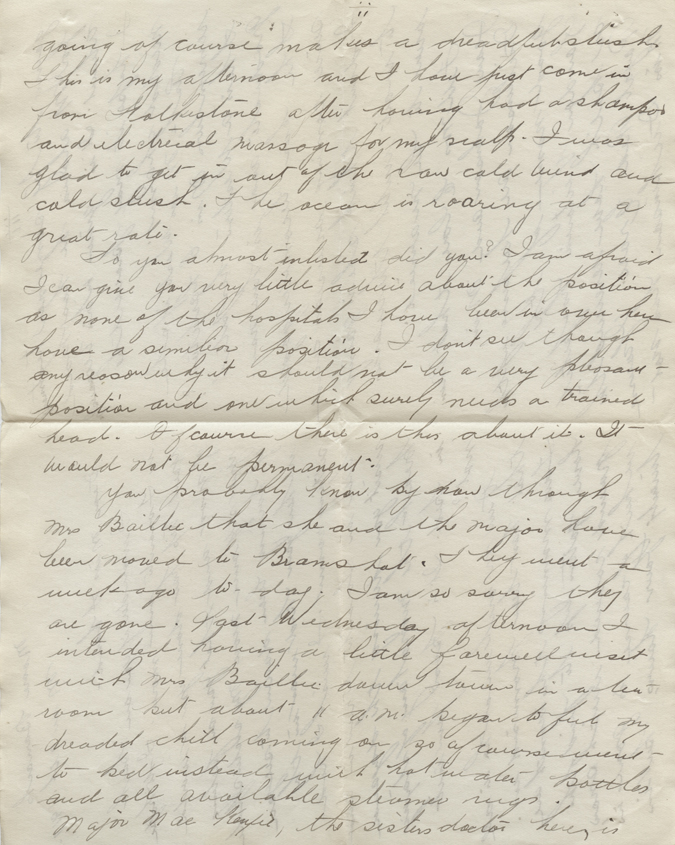 ii
going of course makes a dreadful slush.
This is my afternoon and I have just come in
from Folkestone after having had a shampoo
and electrical massage for my scalp. I was
glad to get in out of the raw cold wind and
cold slush. The ocean is roaring at a
great rate.
So you almost enlisted did you? I am afraid
I can give you very little advice about the position
as none of the hospitals I have been in over here
have a similar position. I don't see though
any reason why it should not be a very pleasant
position and one which surely needs a trained
head. Of course there is this about it. It
would not be permanent.
You probably know by now through
Mrs Baillie that she and the major have
been moved to Bramshot. They went a
week ago to-day. I am so sorry they
are gone. Last Wednesday afternoon I
intended having a little farewell visit
with Mrs Baillie down town in a tea
room but about 11 a.m. began to feel my
dreaded chill coming on, so of course went
to bed instead with hot water bottles
and all available steamer rugs.
Major Mac the sisters doctor here, is